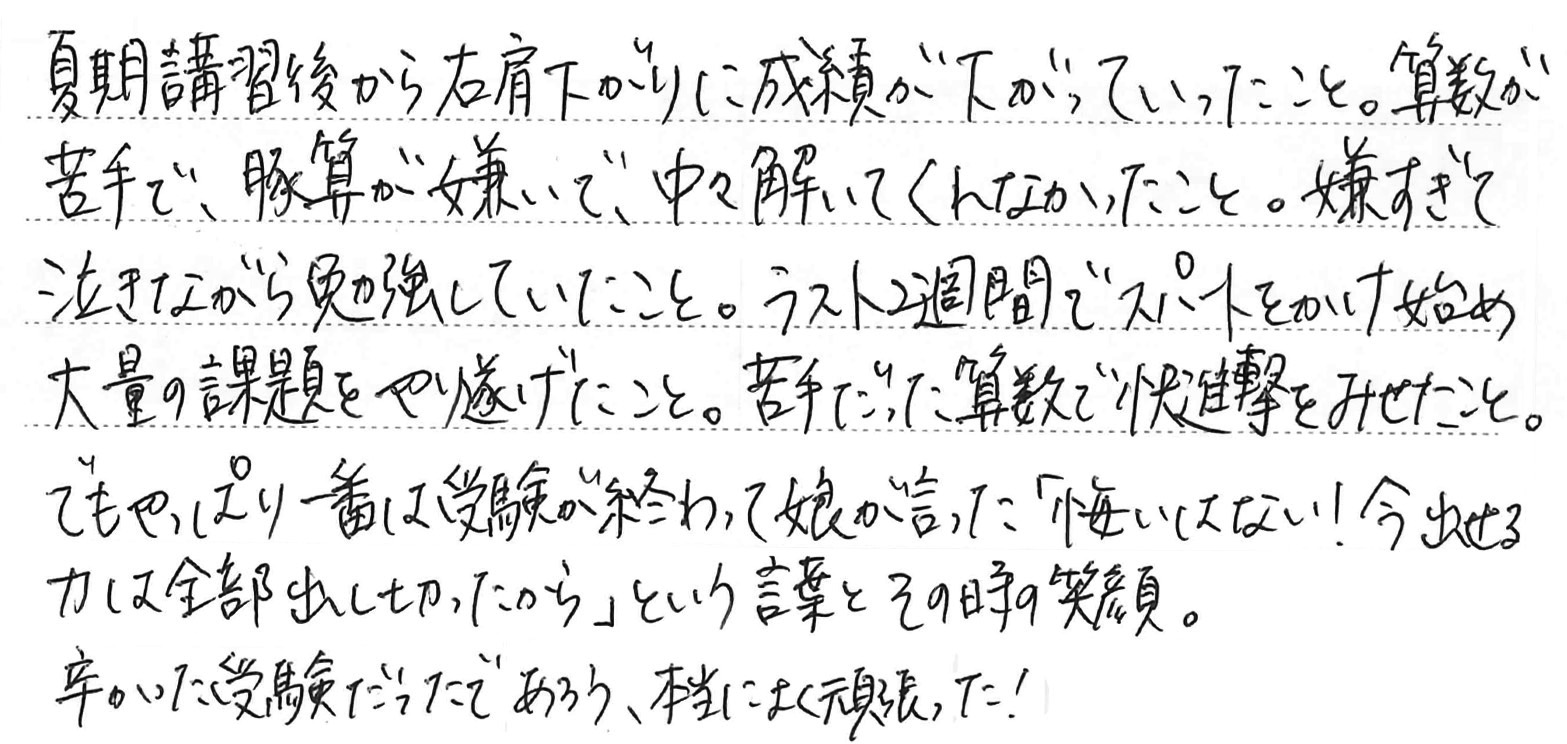 夏期講習後から右肩下がりに成績が下がっていったこと。算数が
苦手で、豚算が嫌いで、中々解いてくれなかったこと。嫌すぎて
泣きながら勉強していたこと。ラスト2週間でスパートをかけ始め
大量の課題をやり遂げたこと。苦手だった算数で快進撃をみせたこと。
でもやっぱり一番は受験が終わって娘が言った「悔いはない!今出せる
力は全部出し切ったから」という言葉とその時の笑顔。
辛かった受験だったであろう、本当によく頑張った!